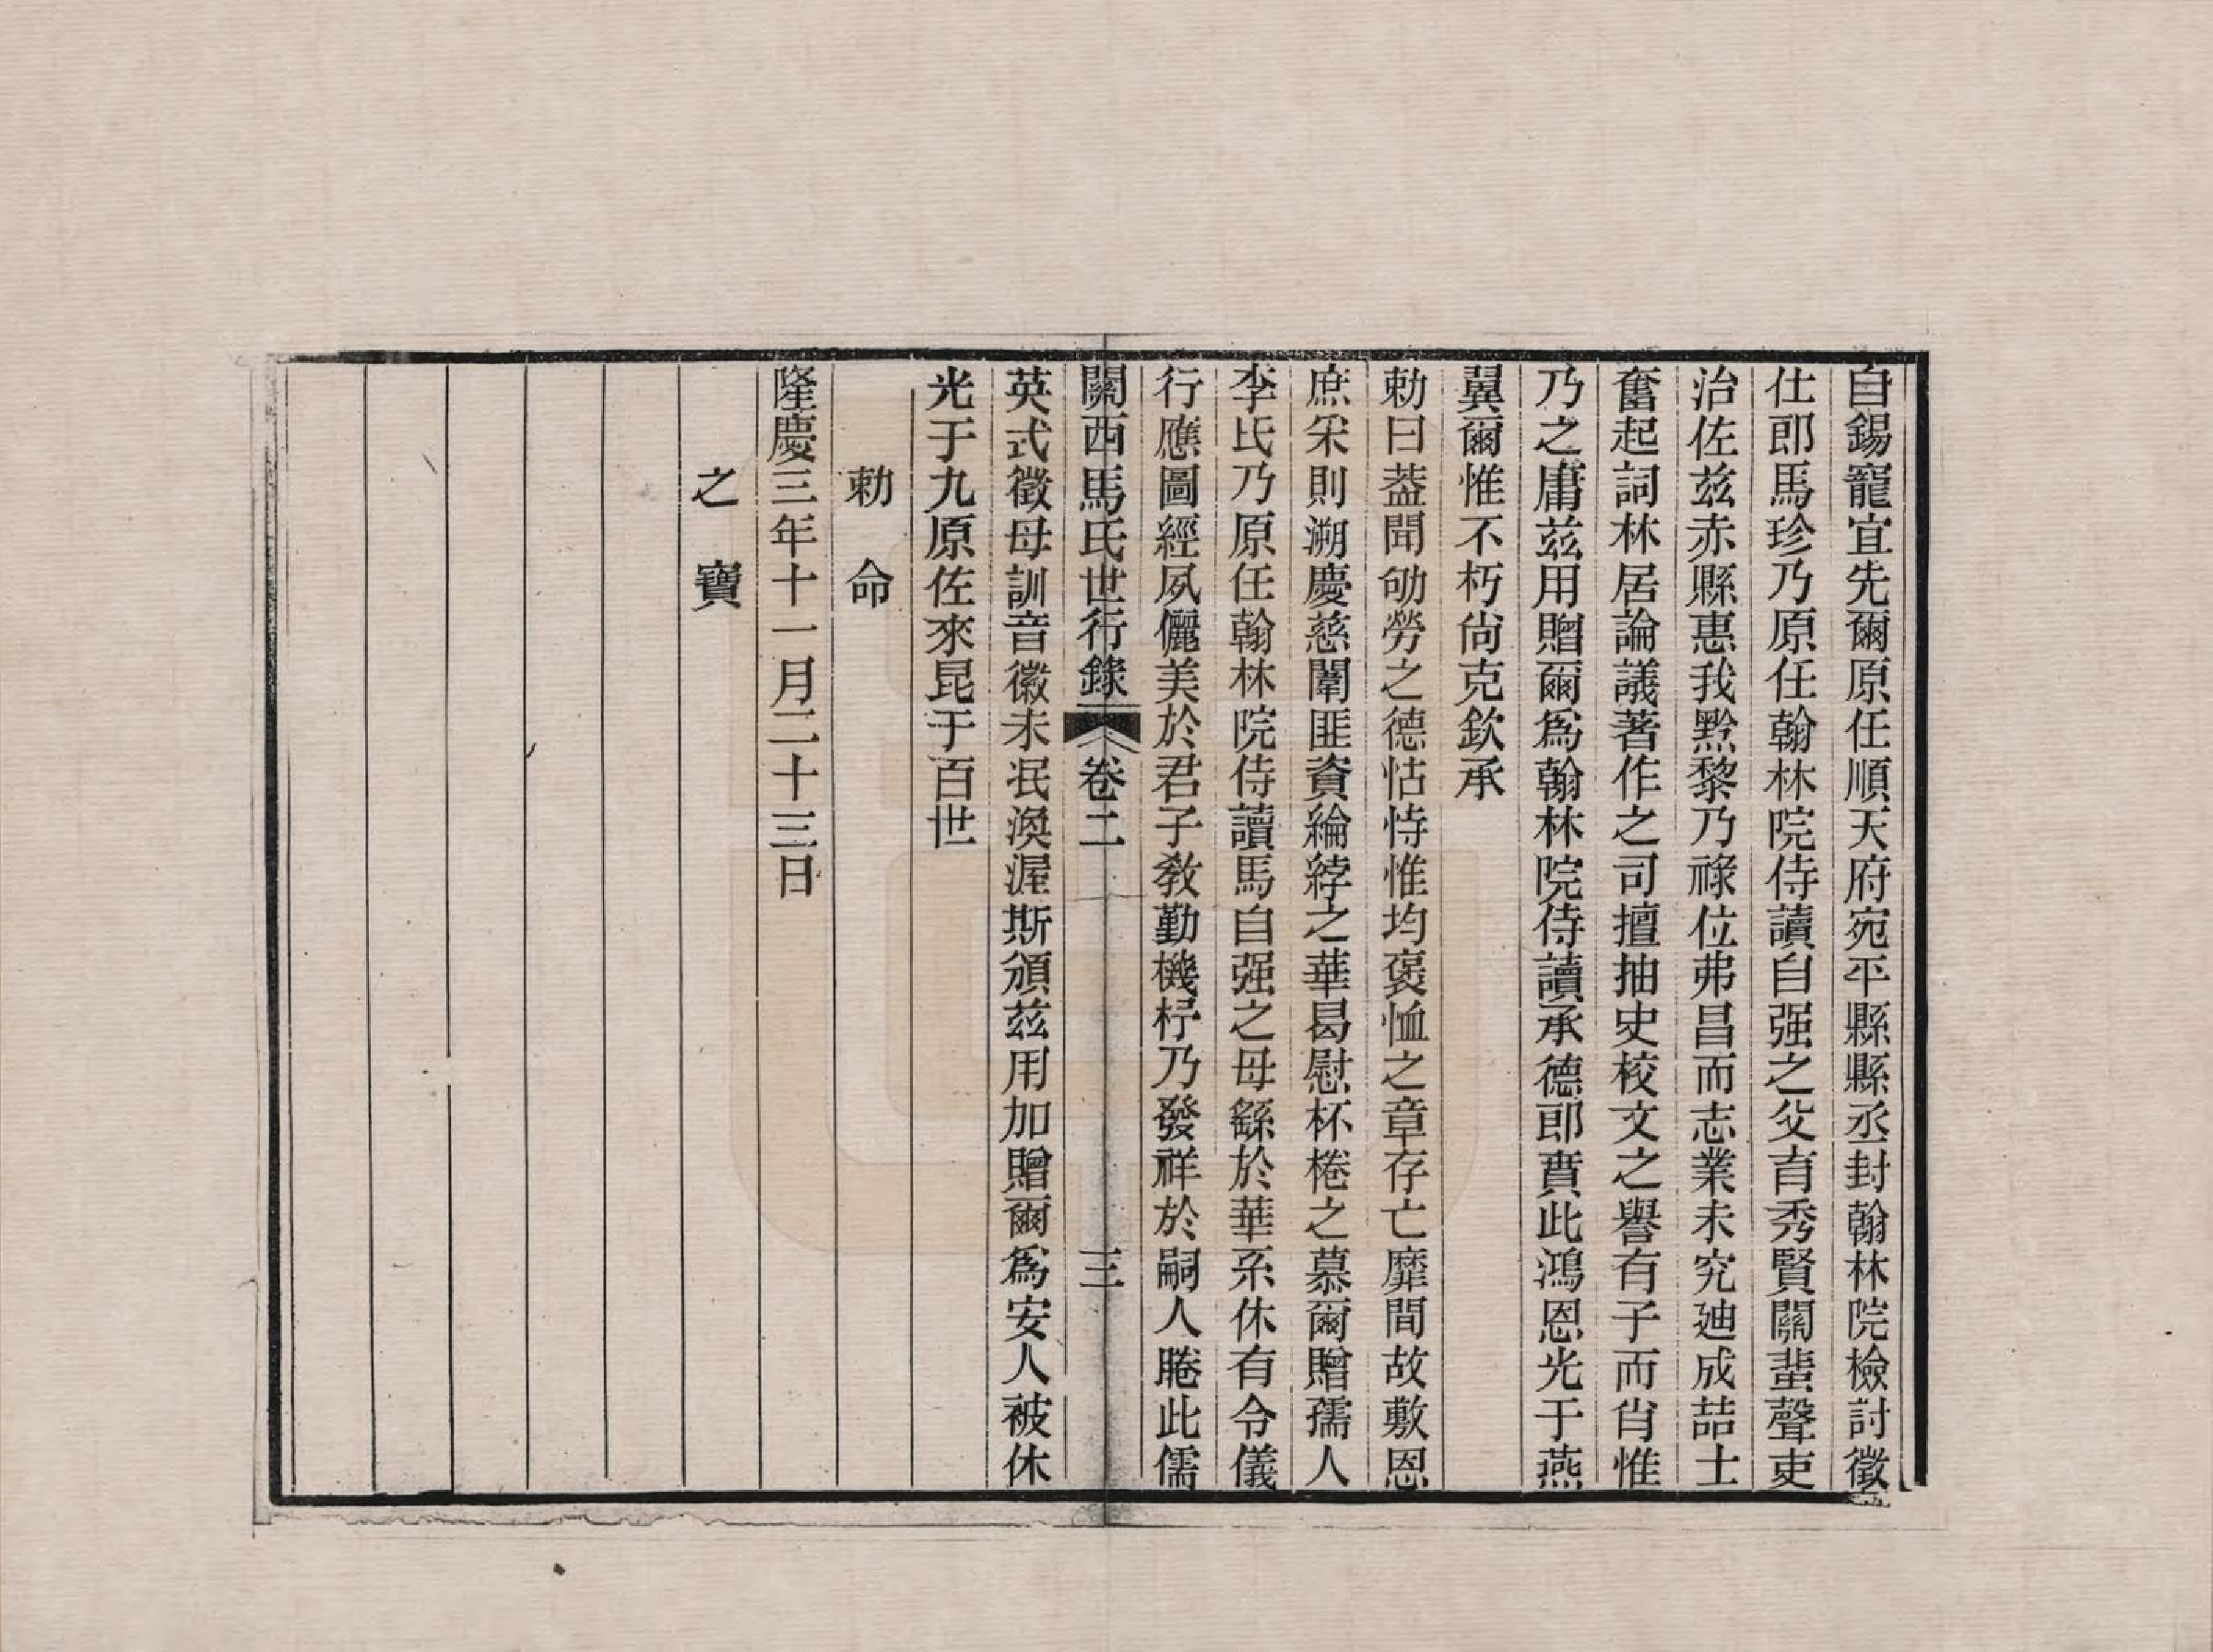 自錫寵宜先爾原任順天府宛平縣縣丞封翰林院檢討徵
仕郎馬珍乃原任翰林院侍讀自强之父育秀賢關蜚聲吏
治佐兹赤縣惠我黔黎乃祿位弗昌而志業未究廸成喆士
奮起詞林居論議著作之司擅抽史校文之譽有子而肖惟
乃之庸兹用贈爾爲翰林院侍讀承德郎賁此鴻恩光于燕
翼爾惟不朽尙克欽承
勅曰葢聞劬勞之德怙恃惟均褒恤之章存亡靡間故敷恩
庶寀則溯慶慈闈匪資綸綍之華曷慰杯棬之慕爾贈孺人
李氏乃原任翰林院侍讀馬自强之母繇於華系休有令儀
行應圖經夙儷美於君子敎勤機杼乃發祥於嗣人睠此儒
關西馬氏世行錄 卷二 三
英式徵母訓音徽未泯渙渥斯頒兹用加贈爾爲安人被休
光于九原佐來昆于百世
勅命
隆慶三年十一月二十三日
之寶